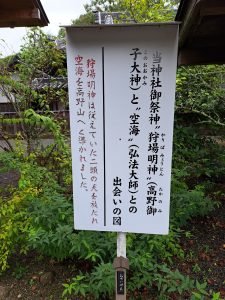 当神社御祭神"狩場明神"(高野御
子大神)と"空海"(弘法大師)との
出会いの図
狩場明神は従えていた二頭の犬を放たれ
空海を高野山へと導かれました。